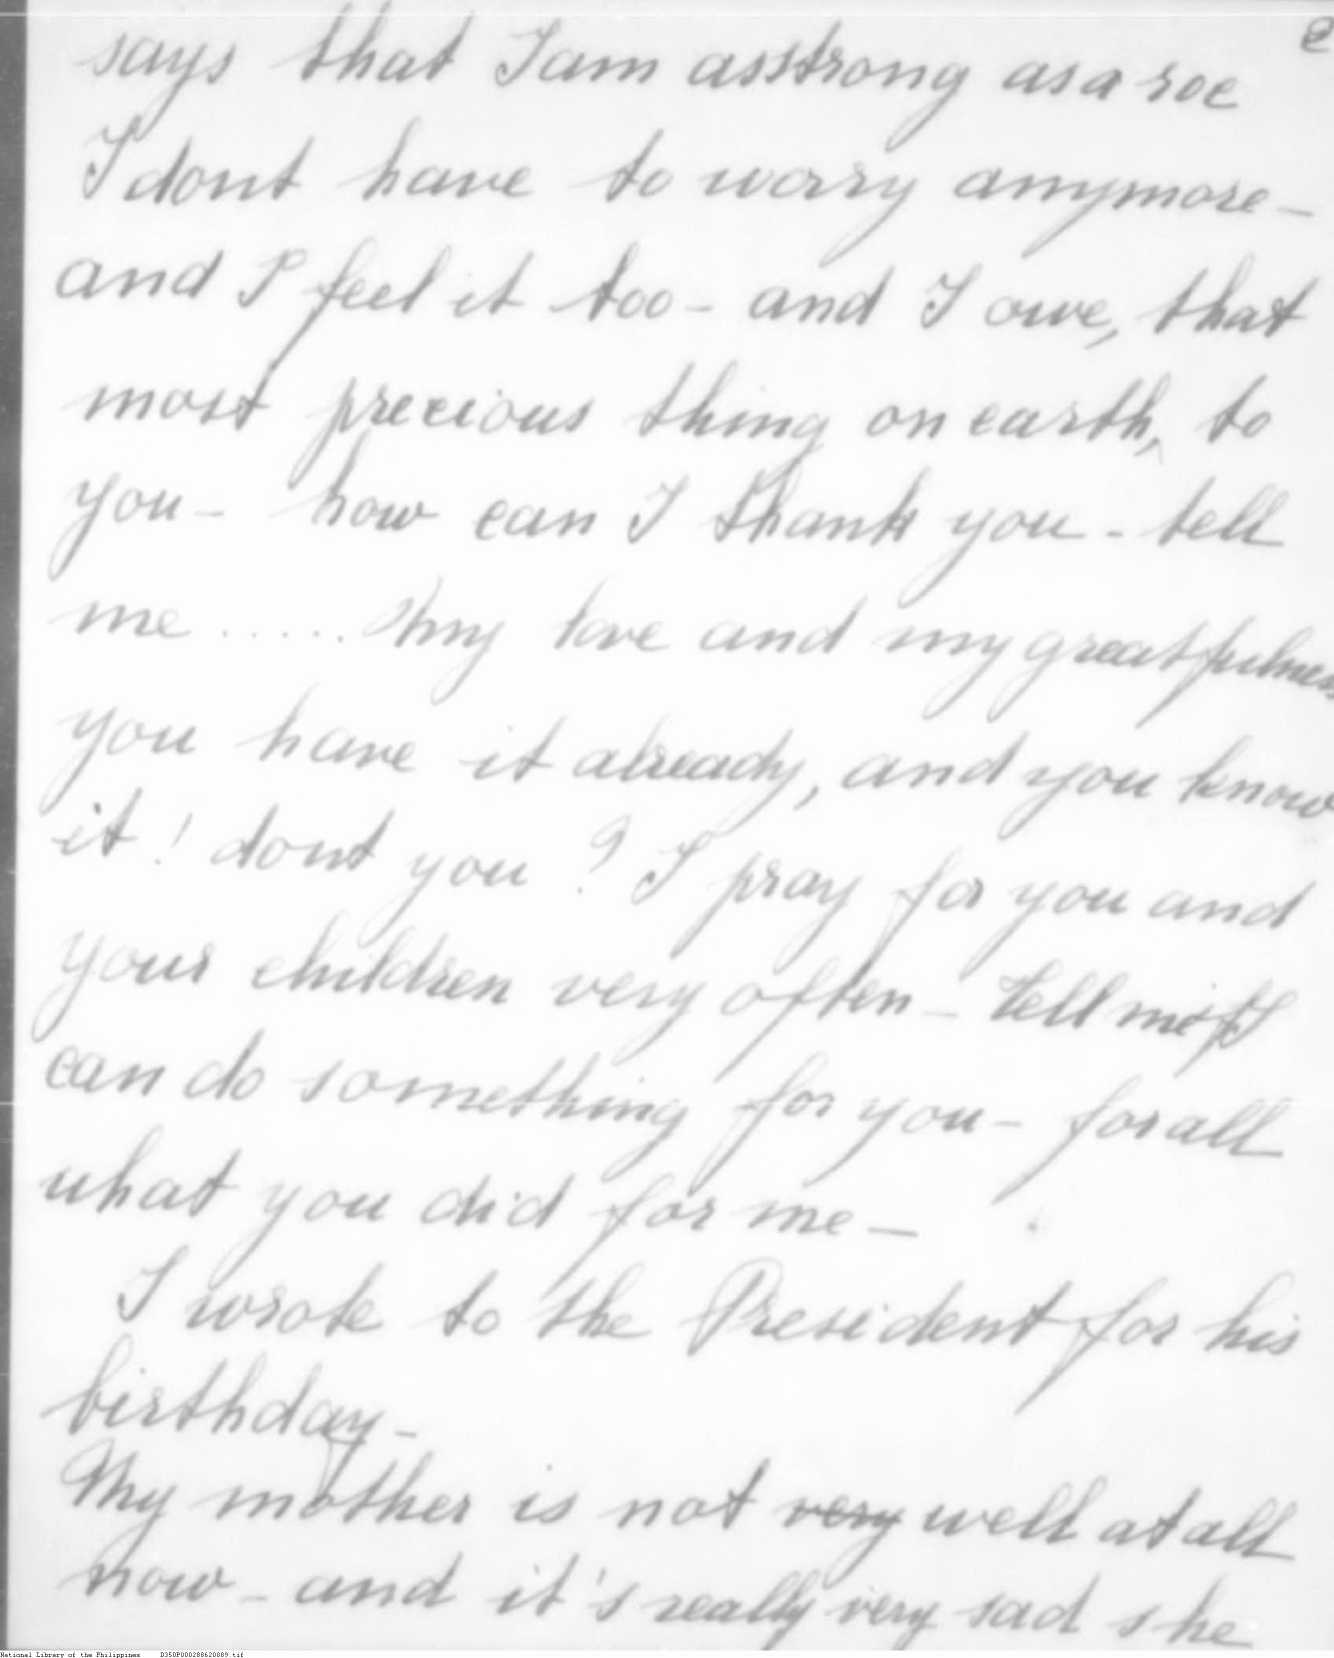 2
says that I am as strong as a roe
I dont have to worry anymore —
and I feel it too — and I owe, that
most precious thing on earth, to
you — how can I thank you - tell
me ..... My love and my greatfulness
you have it already, and you know
it! dont you? I pray for you and
your children very often — tell me if I
can do something for you — for all
what you did for me —
I wrote to the President for his
birthday —
My mother is not very well at all
now — and it's really very sad she
National Library of the Philippines D350P000288620089.tif